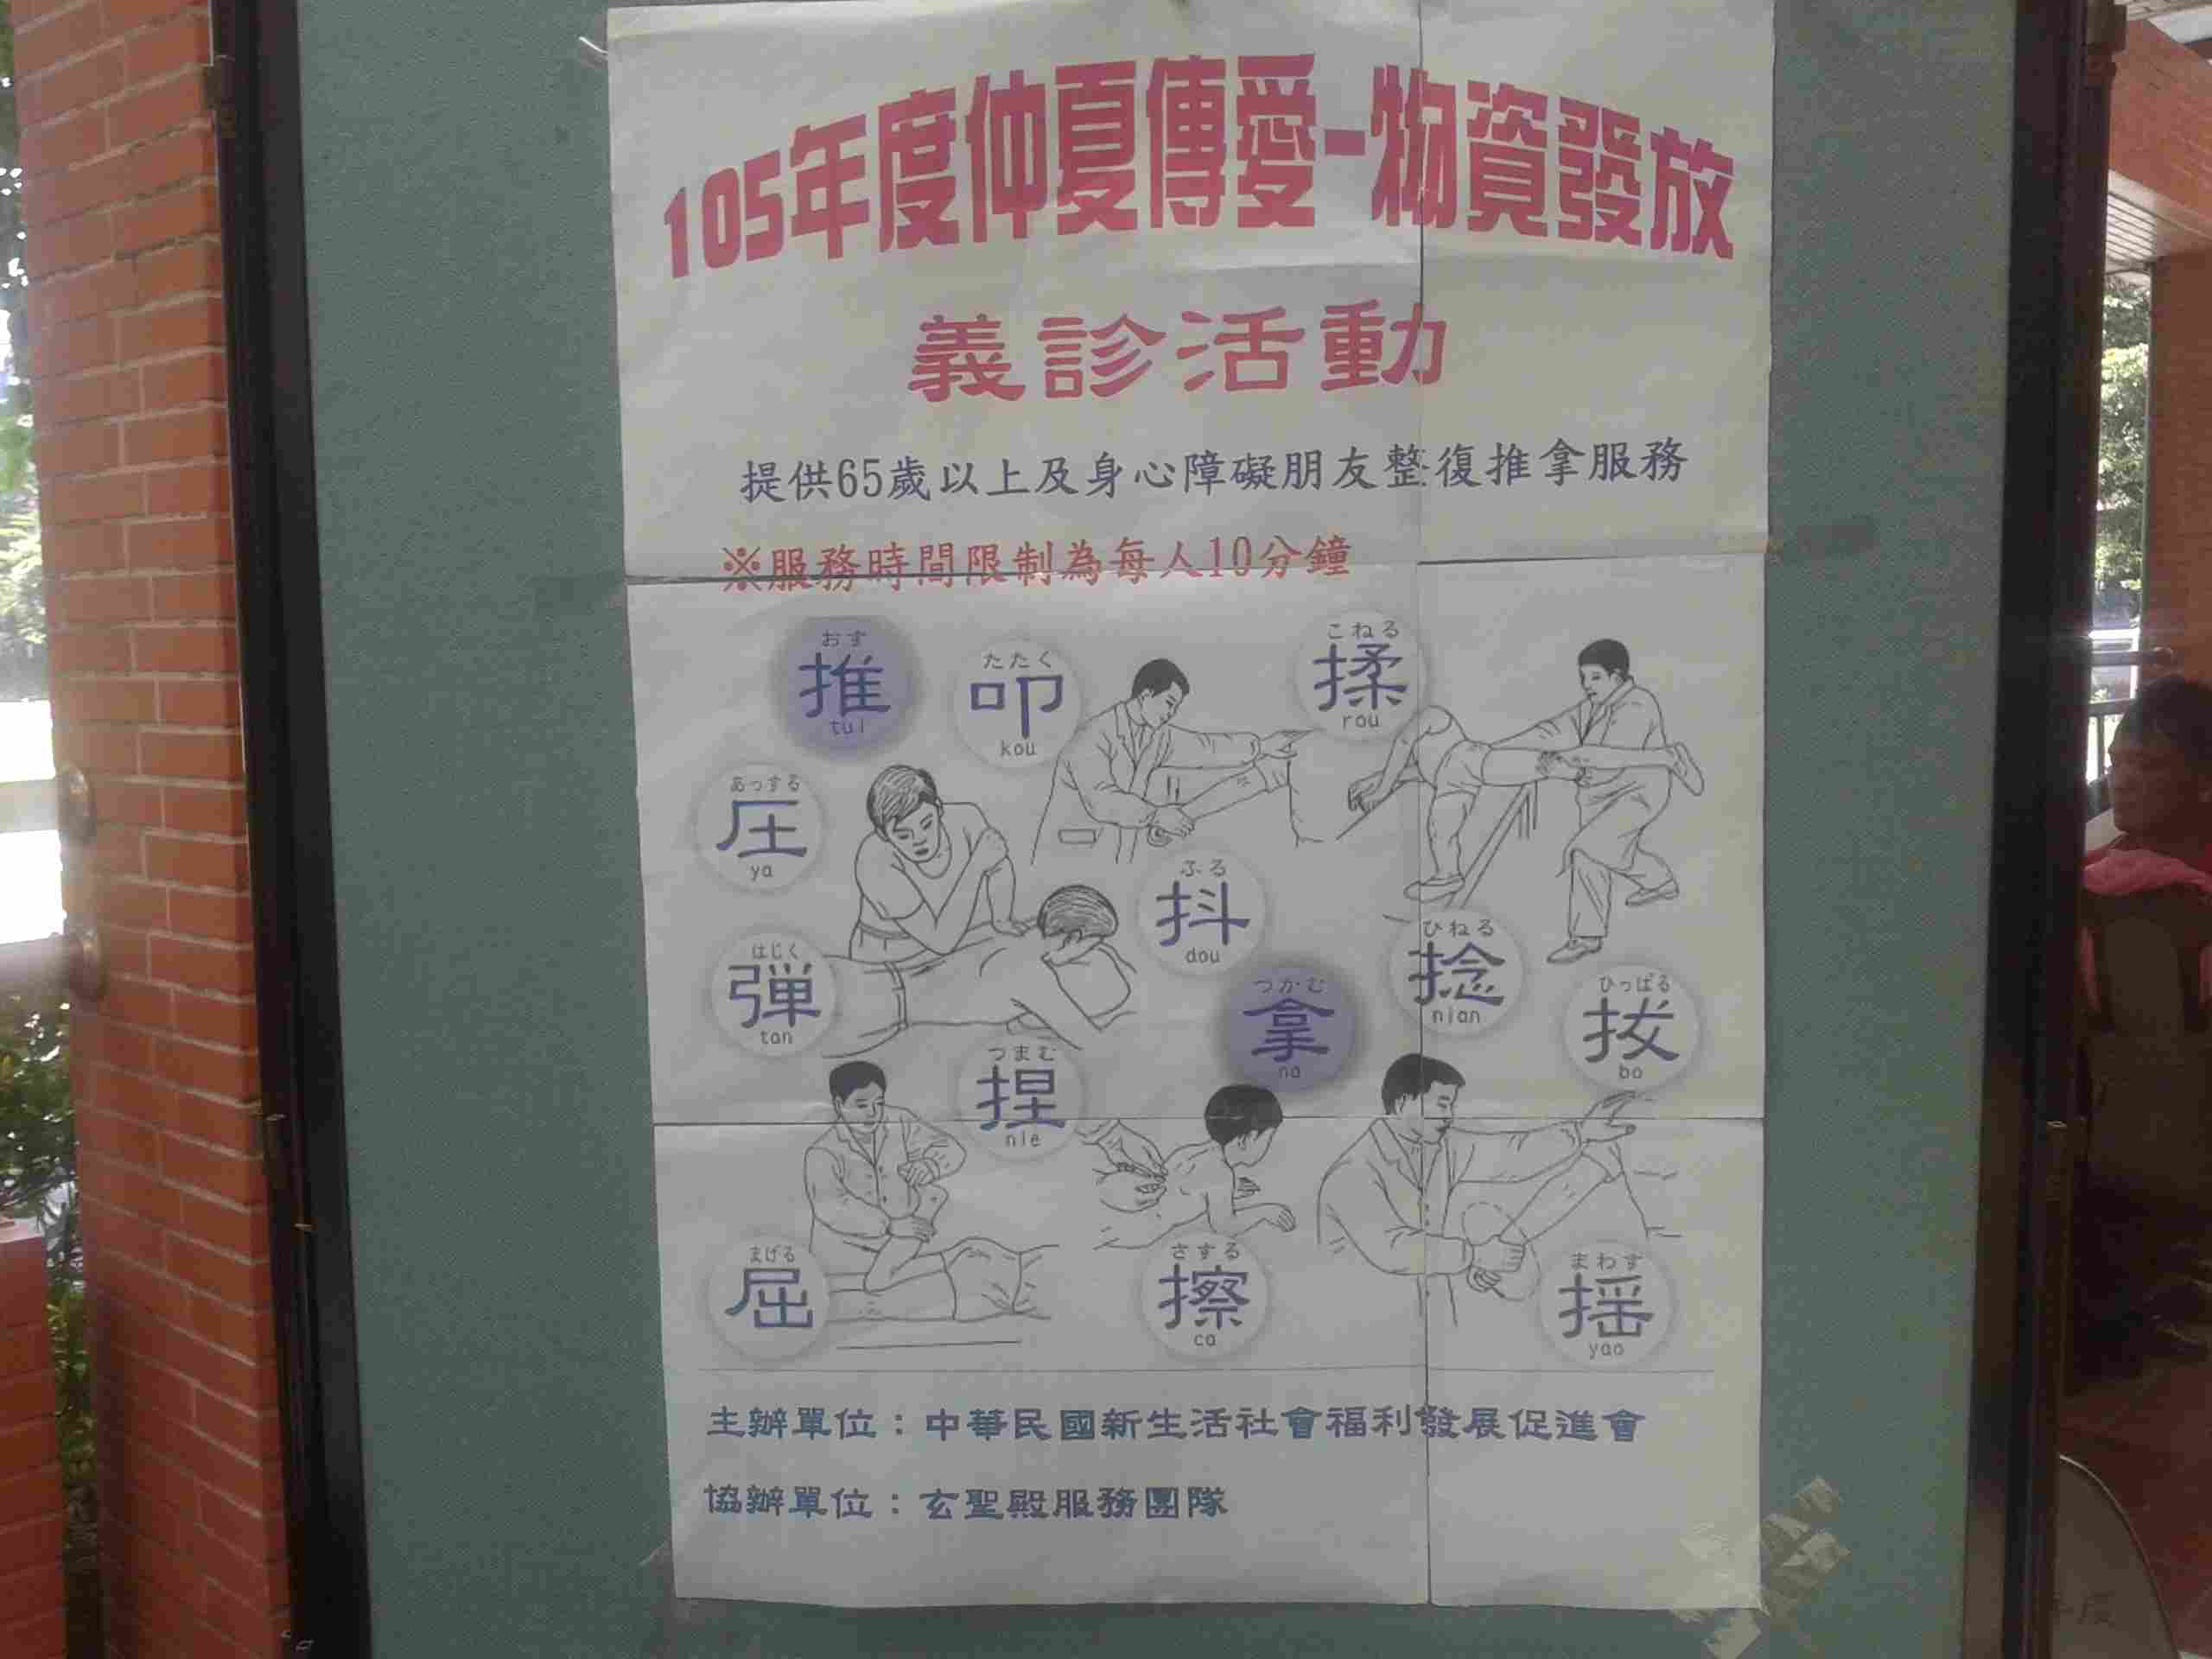 105年度仲夏傳愛-物資發放
義診活動
提供65歲以上及身心障礙朋友整復推拿服務
※服務時間限制為每人10分鐘
おす
推
tui
たたく
叩
kou
こねる
揉
rou
あっする
圧
ya
ふる
抖
dou
ひねる
捻
nian
はじく
弾
tan
つかむ
拿
na
ひっぱる
抜
ba
つまむ
捏
nie
まげる
屈
さする
擦
ca
まわす
揺
yao
主辦單位：中華民國新生活社會福利發展促進會
協辦單位：玄聖殿服務團隊